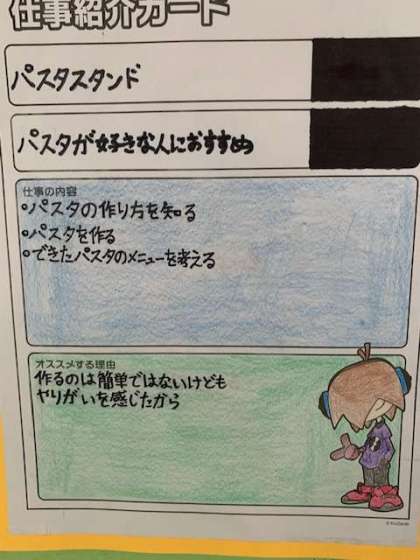 仕事紹介カード
パスタスタンド
パスタが好きな人におすすめ
仕事の内容
○パスタの作り方を知る
○パスタを作る
○できたパスタのメニューを考える
オススメする理由
作るのは簡単ではないけども
やりがいを感じたから